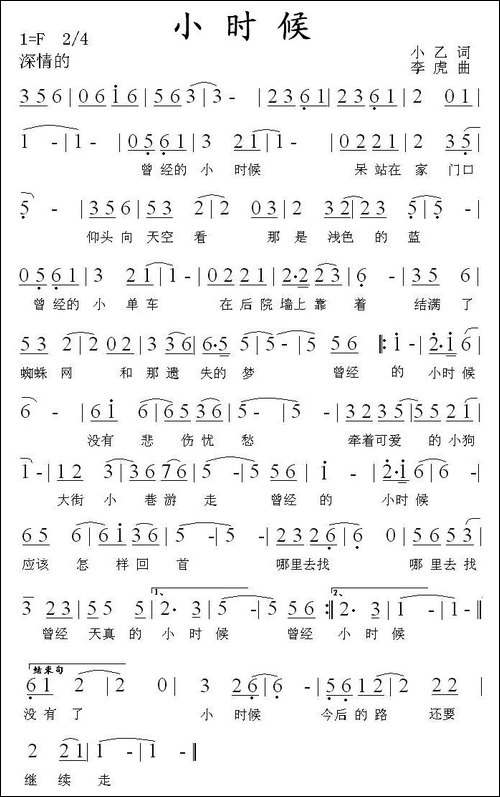 小时候
1=F 2/4
小乙词
深情的
李虎曲
356|0616|563|3-|2361|2361|2 01|
1-|1-|0561|3 21|2-|0221|2 35|
曾经的小时候 呆站在家门口
5-|356|53 2|2 03|2 32|235|5-|
仰头向天空看 那是浅色的蓝
0561|3 21|1-|0221|2·223|6-|35 6|
曾经的小单车 在后院墙上靠着 结满了
53 2|2 02|336|6·5 5-|5-|5 56‖:1-|2·16|
蜘蛛网 和那遗失的梦 曾经的小时候
6-|61 6|6536|5-|5-|3235|5521|
没有悲伤忧愁 牵着可爱的小狗
1-|12 3|3676|5-|5 56|1-|2·16|6-|
大街小巷游走 曾经的小时候
65 6|6136|5-|5-|2326|6 0|5653|
应该怎样回首 哪里去找 哪里去找
3 23|55 5|1.2· 3|5-|5 56:‖2.2· 3|1-|1-‖
曾经天真的小时候 曾经小时候
结束句
61 2|2 0|3 26|6-|5612|2 22|
没有了 小时候 今后的路还要
2 21|1-|1-‖
继续走